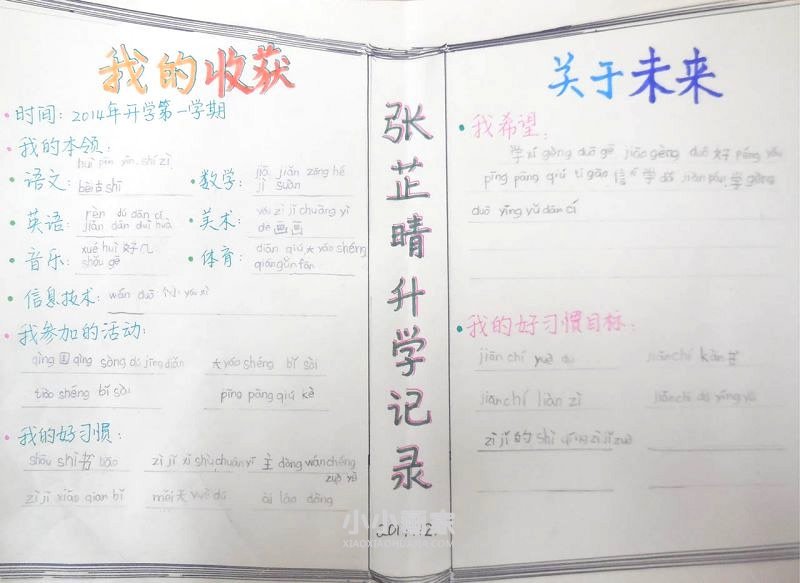 我的收获
时间：2014年开学第一学期
我的本领：
语文：huì pīn yīn.shí zì
bèi古shī
数学：jiā jiǎn zōng hé
jì suàn
英语：rèn dú dān cí
jiǎn dān duì huà
美术：yòu zì jǐ chuàng yì
de画画
音乐：xué huì 好几
shǒu gē
体育：diān qiú 大 yáo shéng
qián gǔn fān
信息技术：wán duō 个 小 yóu xì
我参加的活动：
qìng 国 qìng sòng dú jīng diǎn
大 yáo shéng bǐ sài
tiào shéng bǐ sài
pīng pāng qiú kè
我的好习惯：
shōu shí 书 bāo
zì jǐ xǐ shù chuān yī
主 dòng wán chéng
zuò yè
zì jǐ xiāo qiān bǐ
měi 天 yuè dú
ài láo dòng
张芷晴升学记录
关于未来
我希望：
学 xí gèng duō gē jiāo gèng duō 好 péng yǒu
pīng pāng qiú tí gāo
学 gèng
duō yīng yǔ dān cí
我的好习惯目标：
jiān chí yuè dú
jiān chí kàn 书
jiān chí liàn zì
jiān chí dú yīng yǔ
zì jǐ 的 shì qíng zì jǐ zuò
小小画家
XIAOXIAOHUAJIA.COM